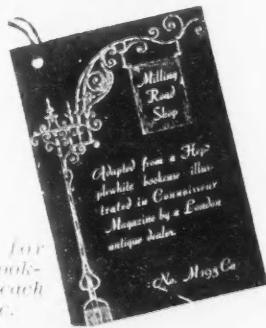 Milling
Road
Shop
Adapted from a Hep-
plewhite bookcase illus-
trated in Connoisseur
Magazine by a London
antique dealer.
No. M195Ca
for
ook-
each